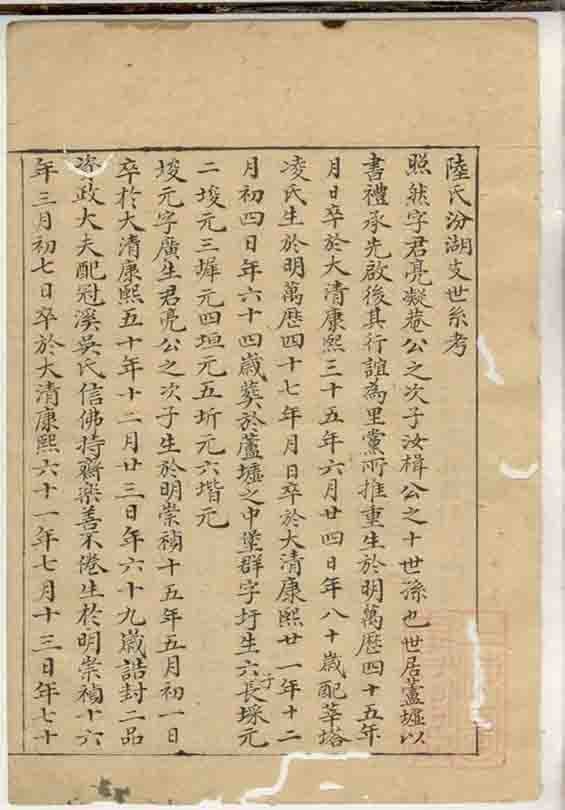 陸氏汾湖支世系考
照然字君亮凝菴公之次子汝楫公之十世孫也世居蘆墟以
書禮承先啟後其行誼為里黨所推重生於明萬歷四十五年
月日卒於大清康熙三十五年六月廿四日年八十歲配莘塔
凌氏生於明萬歷四十七年月日卒於大清康熙廿一年十二
月初四日年六十四歲葬於蘆墟之中堡群字圩生六子長埰元
二埈元三墀元四垣元五圻元六堦元
埈元字廣生君亮公之次子生於明崇禎十五年五月初一日
卒於大清康熙五十年十二月廿三日年六十九歲誥封二品
資政大夫配冠溪吳氏信佛持齋樂善不倦生於明崇禎十六
年三月初七日卒於大清康熙六十一年七月十三日年七十